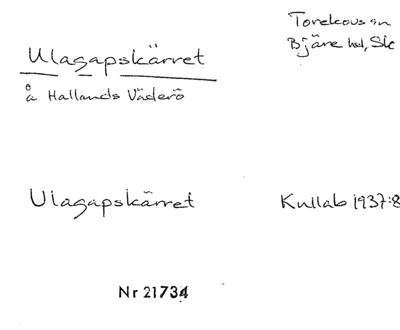 Ulagapskärret
å Hallands Väderö
Torekovs sn
Bjäre hd, Sk
Ulagapskärret
Kullab 1937:8
Nr 21734